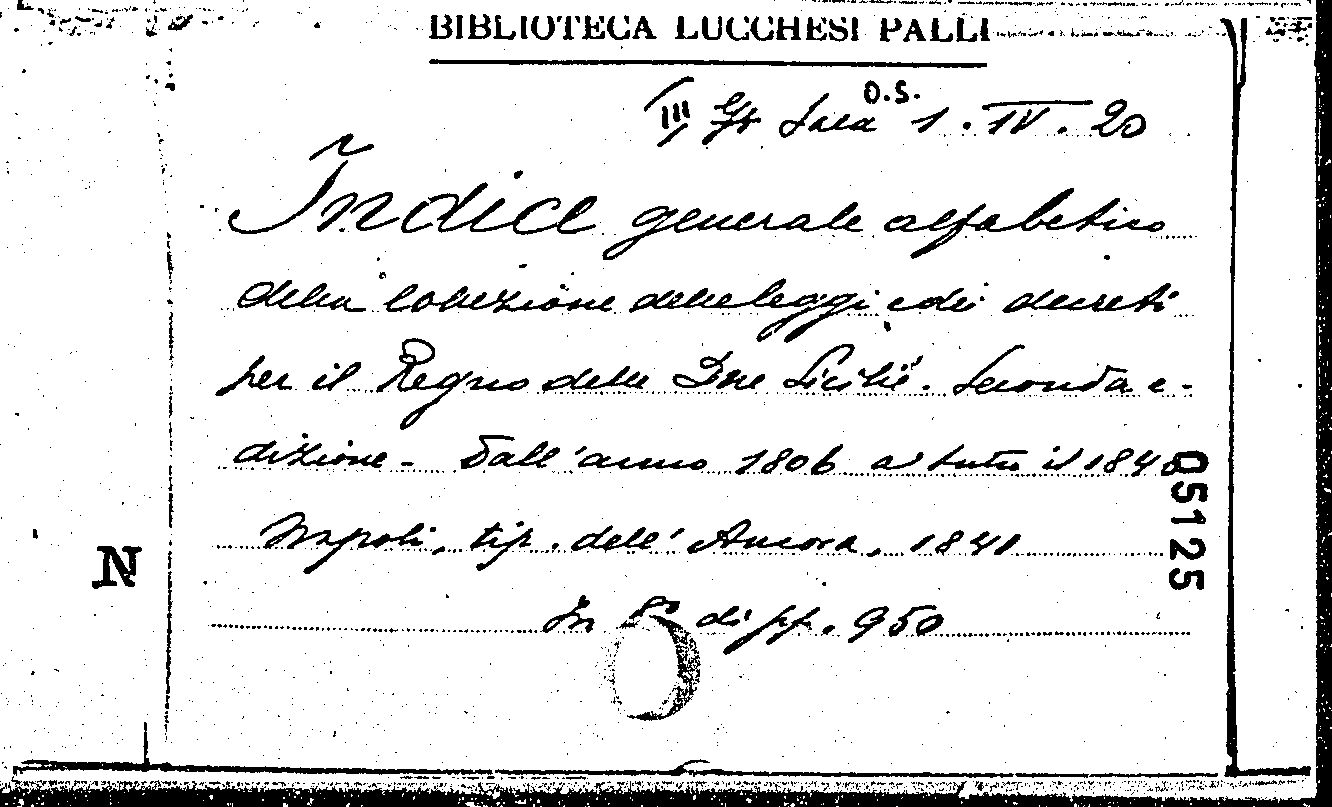 BIBLIOTECA LUCCHESI PALLI
O.S.
III Sala 1. IV. 20
Indice generale alfabetico
della collezione delle leggi e dei decreti
per il Regno delle Due Sicilie. Seconda e-
dizione - Dall'anno 1806 a tutto il 1840
Napoli, tip. dell'Ancora, 1841
In 8° di pp. 950
N
05125